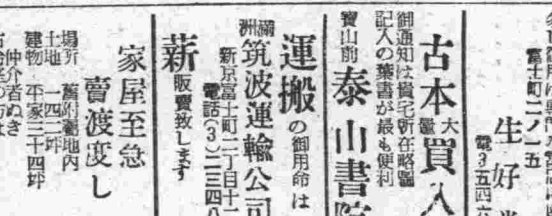 富士町二ノ一五
生好
電3五四六
古本大量買入
御通知は貴宅所在略圖
記入の葉書が最も便利
寶山前 泰山書院
運搬の御用命は
滿洲筑波運輸公司
新京富士町二丁目十一
電話(3)二三四八
薪販賣致します
家屋至急
賣渡度し
場所 舊附屬地內
土地 一四二坪
建物 平家二十四坪
仲介者ぬき